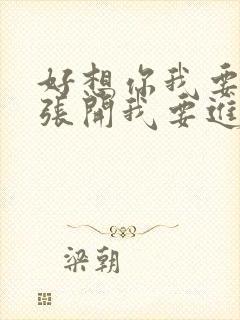 好想你我要
張開我要進
梁朝